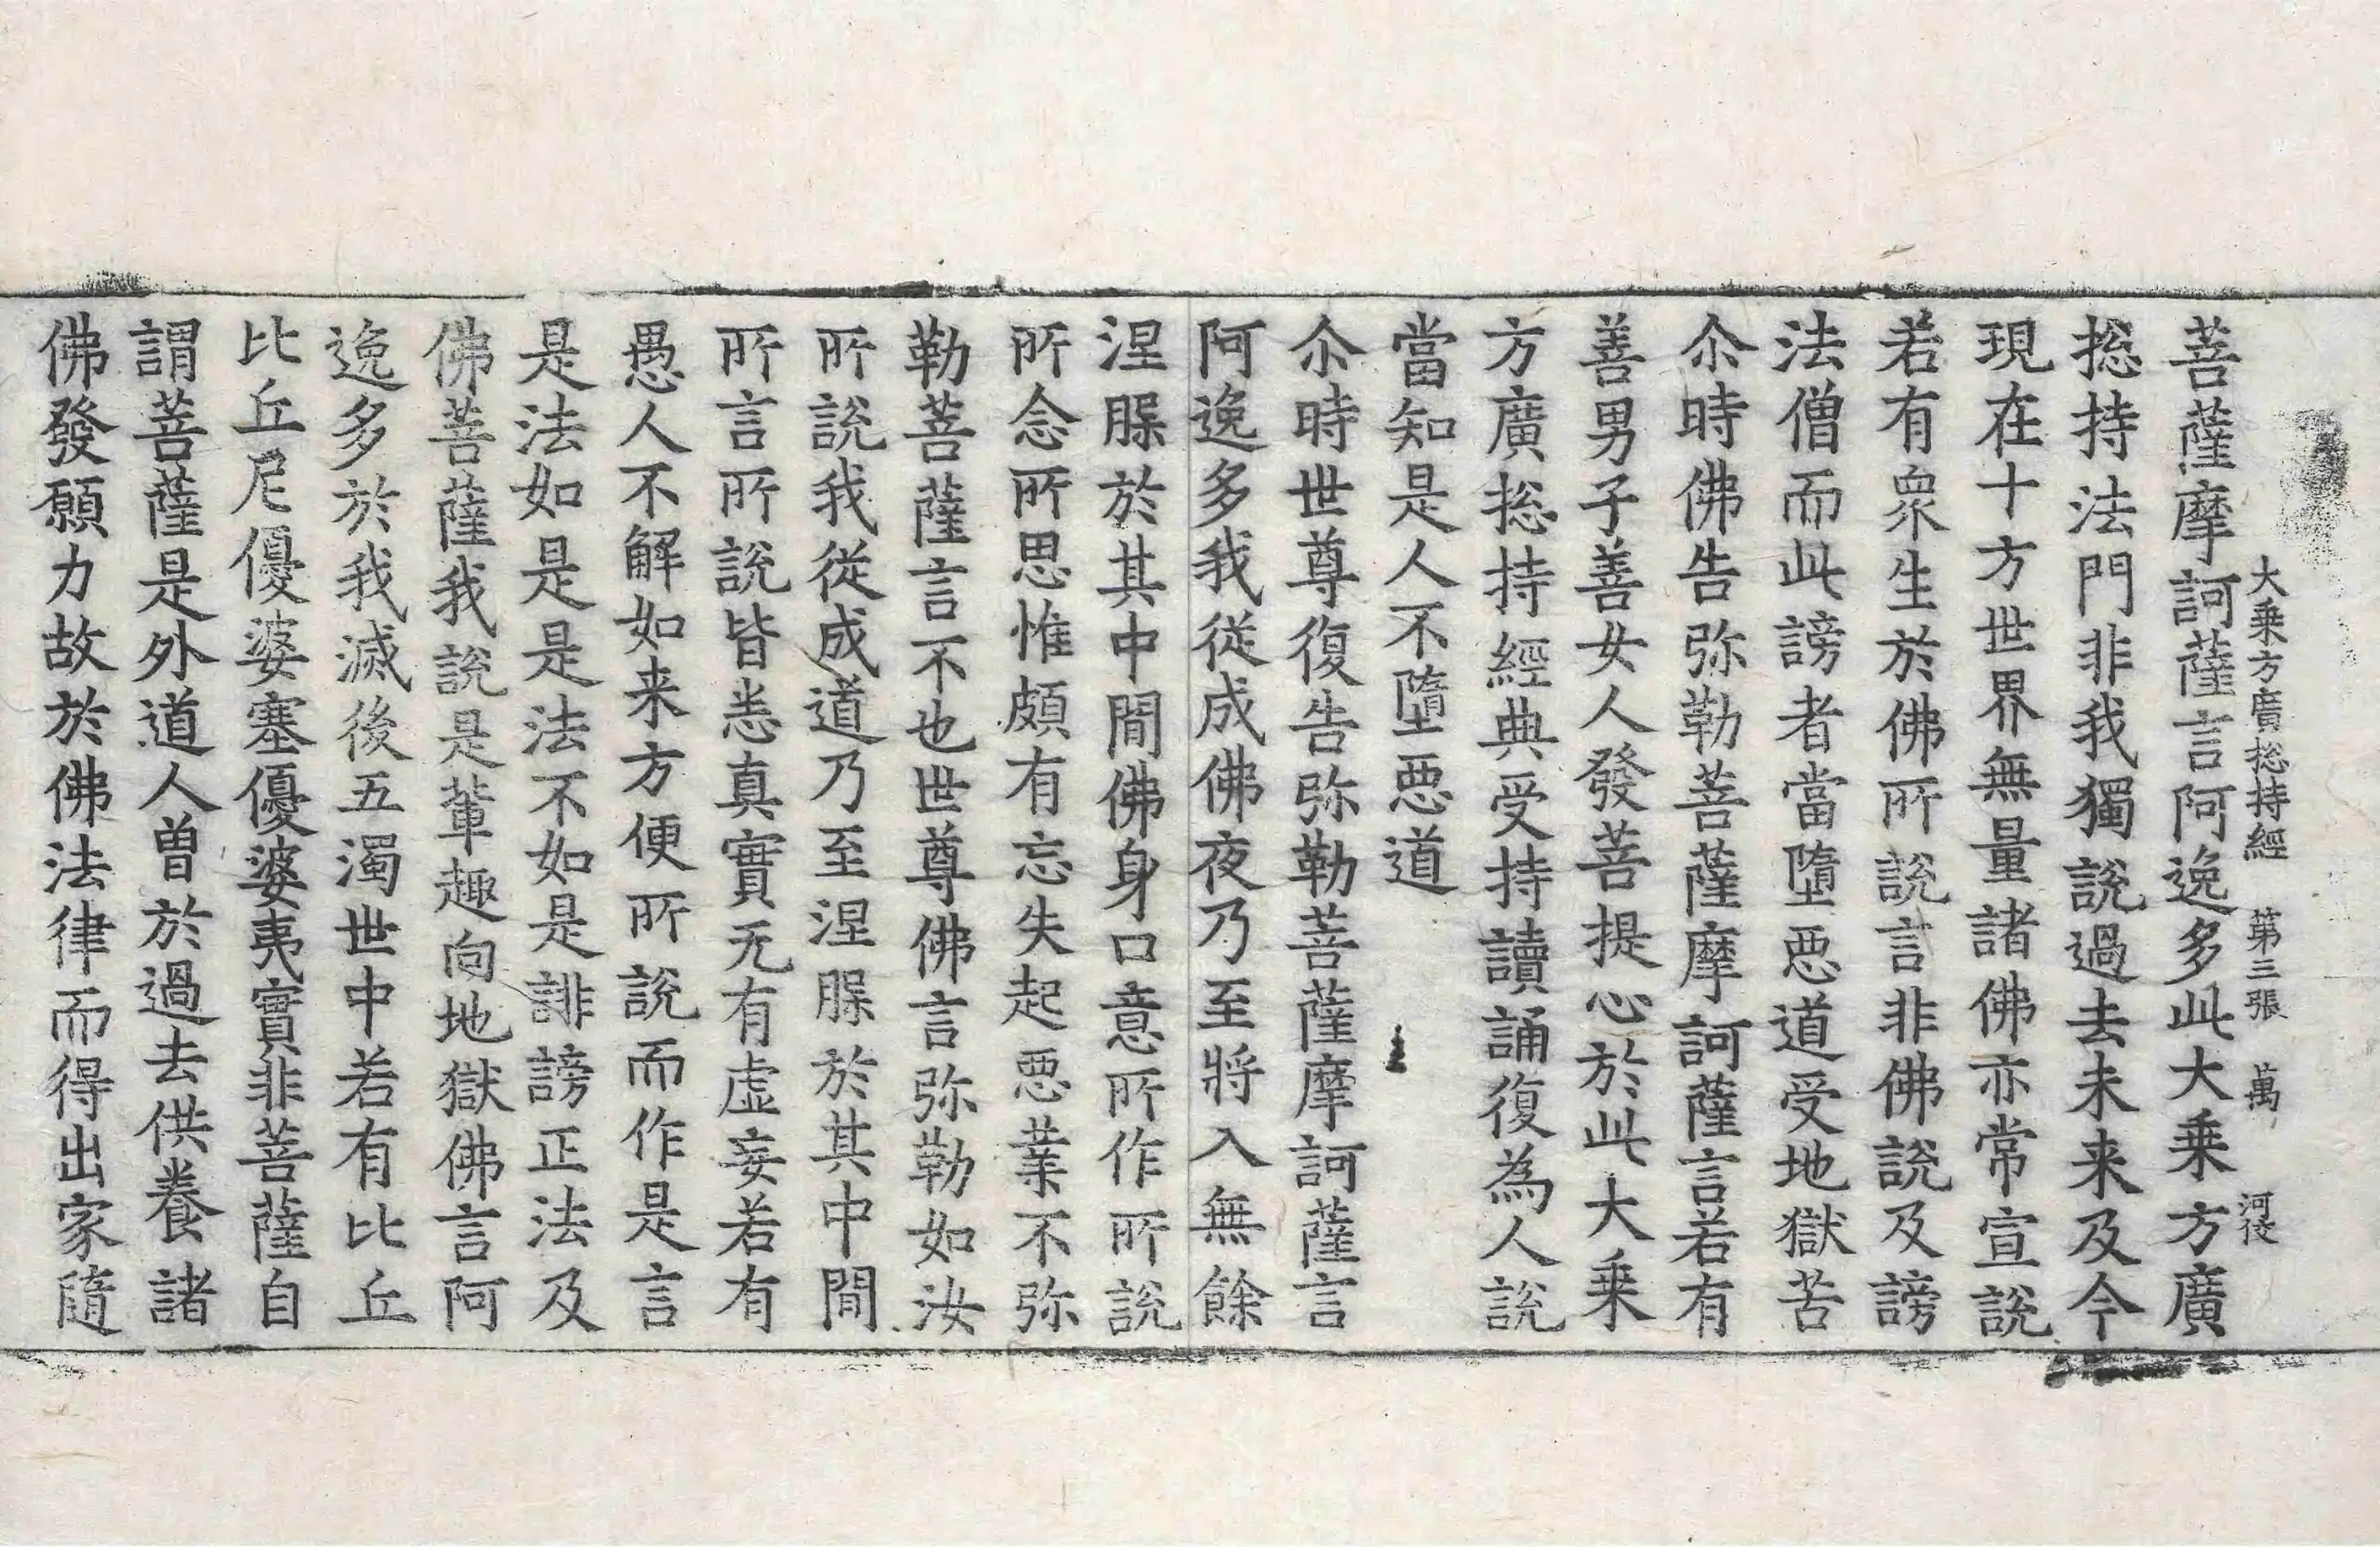 大乗方廣捴持經 第三張 萬 河俊
菩薩摩訶薩言阿逸多此大乗方廣
捴持法門非我獨說過去未来及今
現在十方世界無量諸佛亦常宣說
若有衆生於佛所說言非佛說及謗
法僧而此謗者當墮惡道受地獄苦
尒時佛告弥勒菩薩摩訶薩言若有
善男子善女人發菩提心於此大乗
方廣捴持經典受持讀誦復為人說
當知是人不墮惡道
尒時世尊復告弥勒菩薩摩訶薩言
阿逸多我從成佛夜乃至將入無餘
涅縣於其中間佛身口意所作所說
所念所思惟頗有忘失起惡業不弥
勒菩薩言不也世尊佛言弥勒如汝
所說我從成道乃至涅縣於其中間
所言所說皆悉真實无有虛妄若有
愚人不解如来方便所說而作是言
是法如是是法不如是誹謗正法及
佛菩薩我說是軰趣向地獄佛言阿
逸多於我滅後五濁世中若有比丘
比丘尼優婆塞優婆夷實非菩薩自
謂菩薩是外道人曽於過去供養諸
佛發願力故於佛法律而得出家隨